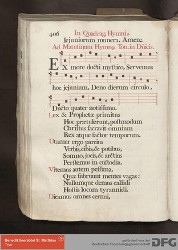 406 In Quadrag. Hymnis
Jejuniorum munera. Amen.
Ad Matutinum Hymnus
Ex more docti mystico, Servemus
hoc jejunium, Deno dierum circulo,
Ducto quater notissimo.
Lex & Prophetæ primitus
Hoc prætulerunt, postmodum
Christus sacravit omnium
Rex atque factor temporum.
Utamur ergo parcius
Verbis, cibis, & potibus,
Somno, jocis, & arctius
Perstemus in custodia.
Vitemus autem pessima,
Quæ subruunt mentes vagas:
Nullumque demus callidi
Hostis locum tyrannidi.
omnes cernui,
DFG